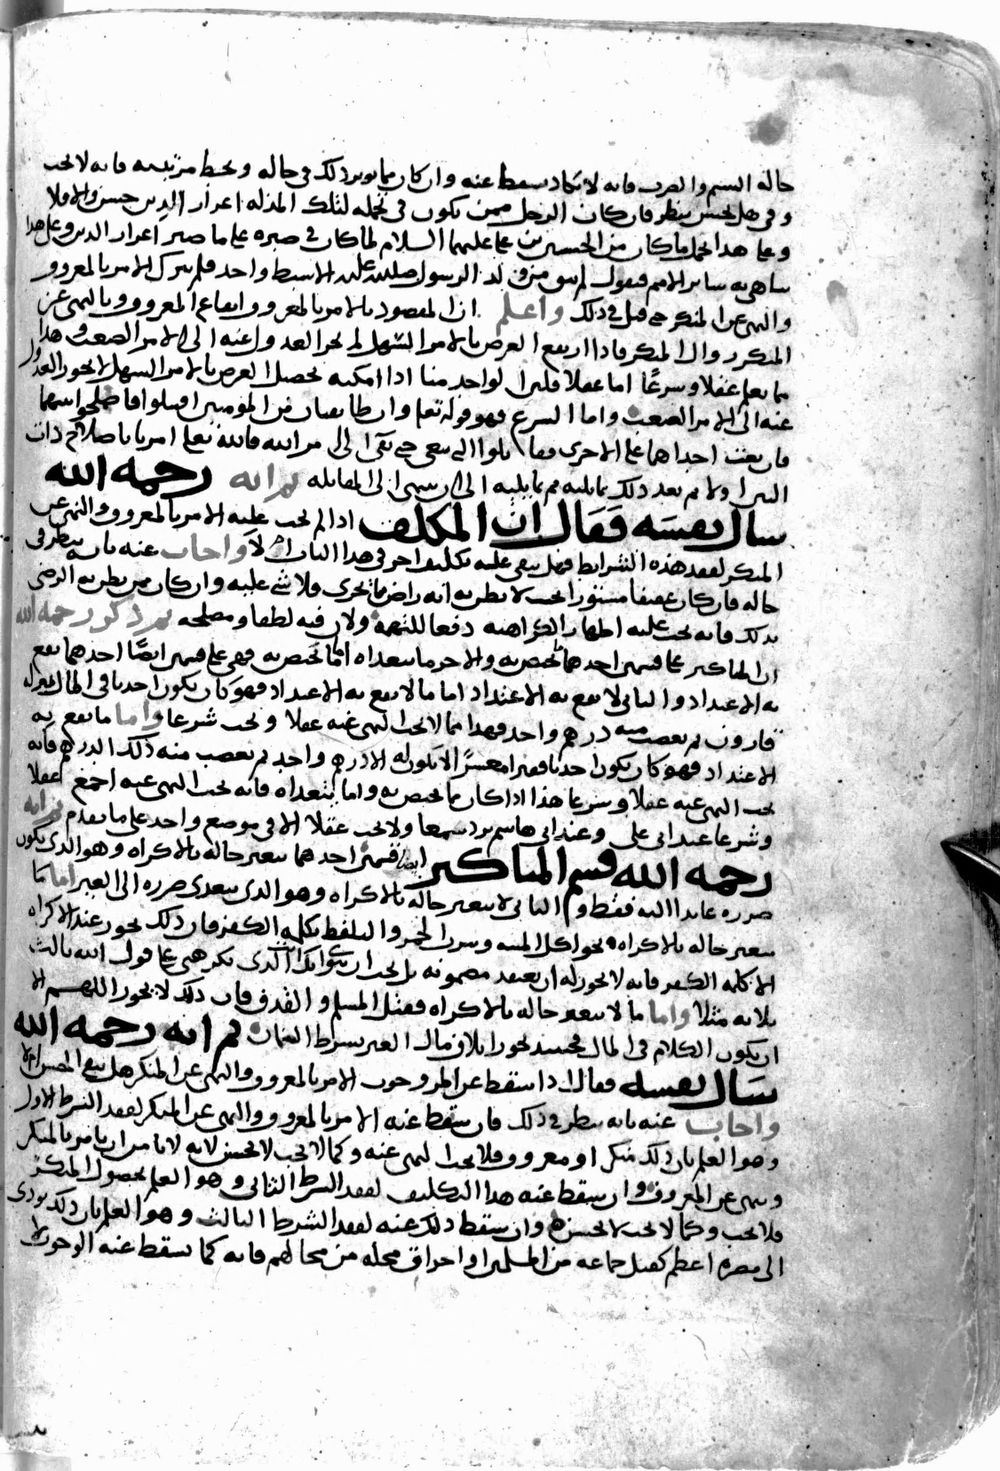 حاله الشتم والضرب فانه لا يكاد يسقط عنه وان كان مما يوثر ذلك في حاله ويحط مرتبته فانه لا يجب
وفي هل يحسن ينظر فان كان الرجل ممن يكون في تحمله لتلك المذله اعزاز الدين حسن والا فلا
وعلى هذا يحمل ما كان من الحسين بن علي عليهما السلام لما كان في صبره على ما صبر اعزاز الدين وعلى هذا
نباهي به سائر الامم فنقول لم يبق من ولد الرسول صلى الله عليه الا سبط واحد فلم يترك الامر بالمعروف
والنهي عن المنكر حتى قتل في ذلك واعلم ان المقصود بالامر بالمعروف ايقاع المعروف وبالنهي عن
المنكر زوال المنكر فاذا ارتفع الغرض بالامر السهل لم يجز العدول عنه الى الامر الصعب وهذا
مما يعلم عقلا وشرعا اما عقلا فلان الواحد منا اذا امكنه تحصيل الغرض بالامر السهل لا يجوز العدول
عنه الى الامر الصعب واما الشرع فهو قوله تعلى وان طائفتان من المومنين اقتتلوا فاصلحوا بينهما
فان بغت احداهما على الاخرى فقاتلوا التي تبغي حتى تفيء الى امر الله فالله تعلى امر باصلاح ذات
البين اولا ثم بعد ذلك بما يليه ثم بما يليه الى ان ينتهي الى المقاتله ثم انه رحمه الله
سال نفسه فقال ان المكلف اذا لم يجب عليه الامر بالمعروف والنهي عن
المنكر لفقد هذه الشرايط فهل يبقى عليه تكليف اخر في هذا الباب ام لا واجاب عنه بانه ينظر في
حاله فان كان عفيفا مستورا بحيث لا يظن به انه راض بما يجري فلا شي عليه وان كان ممن يظن به الرضى
بذلك فانه يجب عليه اظهار الكراهه دفعا للتهمه ولان فيه لطفا ومصلحه ثم ذكر رحمه الله
ان المناكير على قسمين احدهما يختص به والاخر ما يتعداه اما ما يختص به فهي على قسمين ايضا احدهما يقع
به الاعتداد والثاني لا يقع به الاعتداد اما ما لا يقع به الاعتداد فهو كان يكون احدنا في المال بمنزله
قارون ثم يغصب منه درهم واحد فهذا مما لا يجب النهي عنه عقلا ويجب شرعا واما ما يقع به
الاعتداد فهو كان يكون احدنا فقيرا معسرا لا يكون له الا درهم واحد ثم يغصب منه ذلك الدرهم فانه
يجب النهي عنه عقلا وشرعا هذا اذا كان مما يختص به واما يتعداه فانه يجب النهي عنه اجمع عقلا
وشرعا عند ابي علي وعند ابي هاشم يرد سمعا ولا يجب عقلا الا في موضع واحد على ما تقدم ثم انه
رحمه الله قسم المناكير ايضا قسمين احدهما يتغير حاله بالاكراه وهو الذي يكون
ضرره عايدا اليه فقط والثاني لا يتغير حاله بالاكراه وهو الذي يتعدى ضرره الى الغير اما ما
يتغير حاله بالاكراه نحو اكل الميته وشرب الخمر والتلفظ بكلمه الكفر فان ذلك يجوز عند الاكراه
الا كلمه الكفر فانه لا يجوز له ان يعتقد مضمونه بل يجب ان ينوي انك الذي تكرهني على قول الله ثالث
ثلاثه مثلا واما ما لا يتغير حاله بالاكراه فقتل المسلم والقذف فان ذلك لا يجوز اللهم الا
ان يكون الكلام في المال فحينئذ يجوز اتلاف مال الغير بشرط الضمان ثم انه رحمه الله
سال نفسه فقال اذا سقط عن المرء وجوب الامر بالمعروف والنهي عن المنكر هل يبقى الحسن ام لا
واجاب عنه بانه ينظر في ذلك فان سقط عنه الامر بالمعروف والنهي عن المنكر لفقد الشرط الاول
وهو العلم بان ذلك منكر او معروف فلا يجب النهي عنه وكما لا يجب لا يحسن لانه لا يامن ان يامر بالمنكر
وينهى عن المعروف وان سقط عنه هذا التكليف لفقد الشرط الثاني وهو العلم بحصول المنكر
فلا يجب وكما لا يجب لا يحسن وان سقط ذلك عنه لفقد الشرط الثالث وهو العلم بان ذلك يودي
الى مضره اعظم كقتل جماعه من المسلمين او احراق محله من محالهم فانه كما يسقط عنه الوجوب لا